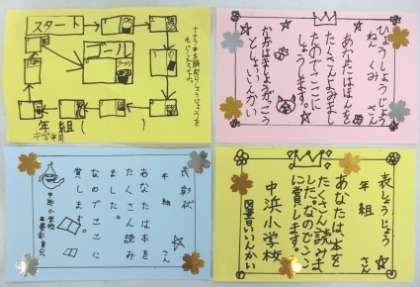 スタート
ゴール
年 組 ( )
ひょうしょうじょう
ねん くみ さん
あなたはほんを
たくさんよみまし
たのでここに
しょうします。
としょいいんかい
表彰状
年 組 さん
あなたは本を
たくさん読み
ました。
なのでここに
賞します。
中浜小学校
図書委員会
表しょうじょう
年 組 さん
あなたは、本を
たくさん読みま
した。なのでここ
に賞します。
中浜小学校
図書いいんかい